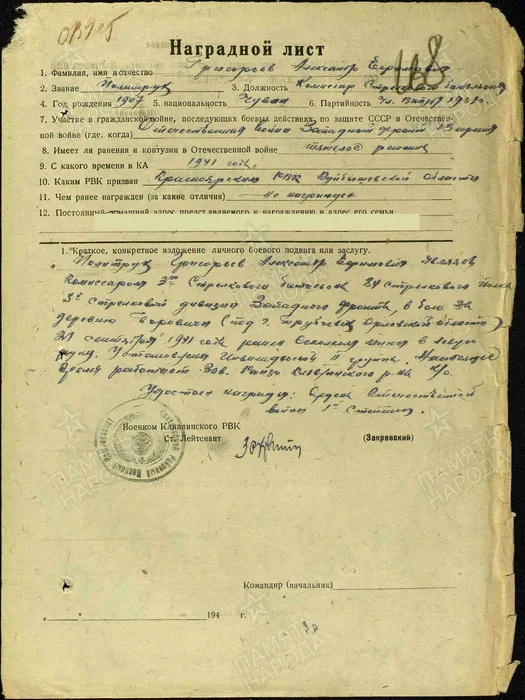 Наградной лист
1. Фамилия, имя и отчество Григорьев Александр Ефимович
2. Звание Политрук 3. Должность Комиссар Стрелкового батальона
4. Год рождения 1907 5. национальность Чуваш 6. Партийность Чл. ВКП(б)
7. Участие в гражданской войне, последующих боевых действиях по защите СССР и Отечествен-
ной войне (где, когда) Отечественная война Западный фронт армия
8. Имеет ли ранения и контузии в Отечественной войне тяжело ранение
9. С какого времени в КА 1941 года
10. Каким РВК призван Красноярским РВК Куйбышевской области
11. Чем ранее награжден (за какие отличия) не награжден
12. Постоянный домашний адрес представляемого к награждению и адрес его семьи
1. Краткое, конкретное изложение личного боевого подвига или заслуг.
Политрук Григорьев Александр Ефимович являясь
Комиссаром 3го Стрелкового батальона Стрелкового Полка
Стрелковой дивизии Западного фронта, в бою за
деревню (под г. Трубчевск Орловской области)
21 сентября 1941 года ранен в левую
Установлена II группа. Настоящее
Время работает Зав. Клявлинского р-на
Удостоен награды: Ордена Отечественной
войны 1й Степени.
Военком Клявлинского РВК
Ст. Лейтенант (Закревский)
Командир (начальник)
194 г.
ПАМЯТЬ
НАРОДА